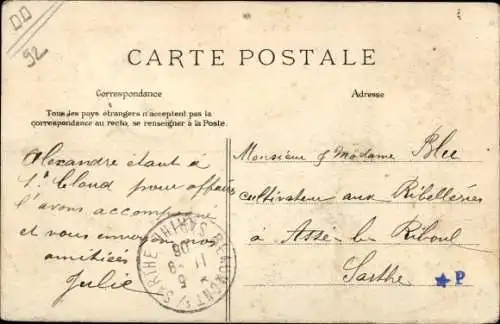 DD
92
CARTE POSTALE
Correspondance
Adresse
Tous les pays étrangers n'acceptent pas la
correspondance au recto, se renseigner à la Poste.
Alexandre étant à
St Cloud pour affaires
l'avons accompagné
et vous envoyons nos
amitiées
Julie
Monsieur & Madame Blu
cultivateur aux Ribelleries
à Assé le Riboul
Sarthe
SARTHE
P